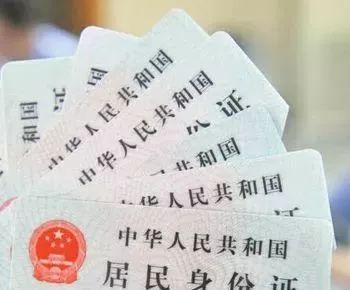 和国
证
中华人民共和国
中华人民共和国
份证
中华人民共和国
中华人民共和国
居民身份证